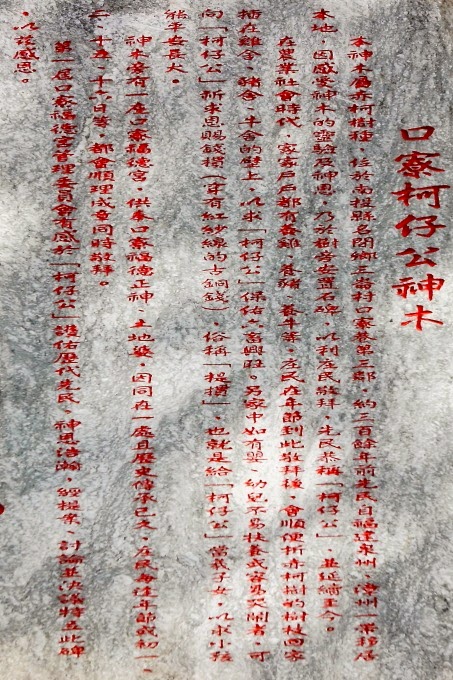 口寮柯仔公神木
本神木為赤柯樹種，位於南投縣名間鄉三崙村口寮巷第三鄰，約三百餘年前先民自福建泉州、漳州一帶移居
本地，因感受神木的靈驗及神恩，乃於樹旁安置石碑，以利庄民敬拜，先民恭稱「柯仔公」，甚延續至今。
在農業社會時代，家家戶戶都有養雞、養豬、養牛等，庄民在年節到此敬拜後，會順便折赤柯樹的樹枝回家
插在雞舍、豬舍、牛舍的壁上，以求「柯仔公」保佑六畜興旺。另家中如有嬰、幼兒不易扶養或容易哭鬧者，可
向「柯仔公」祈求恩賜錢摜（穿有紅紗線的古銅錢），俗稱「提摜」，也就是給「柯仔公」當義子女，以求小孩
能平安長大。
神木旁有一座口寮福德宮，供奉口寮福德正神、土地婆，因同在一處且歷史傳承已久，庄民每逢年節或初一、
二、十五、十六日等，都會順理成章同時敬拜。
第一屆口寮福德宮管理委員會有感於「柯仔公」護佑歷代先民，神恩浩瀚，經提案、討論並決議特立此碑
，以誌感恩。